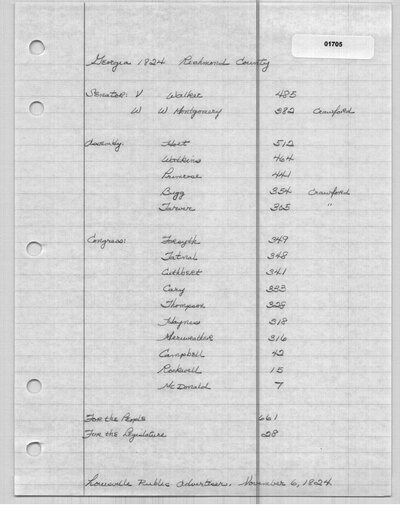 01705
Georgia 1824 Richmond County
Senator: V Walker 485
W W Montgomery 382 Crawford
Assembly: Holt 512
Watkins 464
Primrose 441
Bugg 354 Crawford
Tarver 365 "
Congress: Forsyth 349
Tatnal 348
Cuthbert 341
Cary 333
Thompson 328
Haynes 318
Meriwether 316
Campbell 42
Rockwell 15
McDonald 7
For the People 661
For the Legislature 28
Louisville Public Advertiser, November 6, 1824